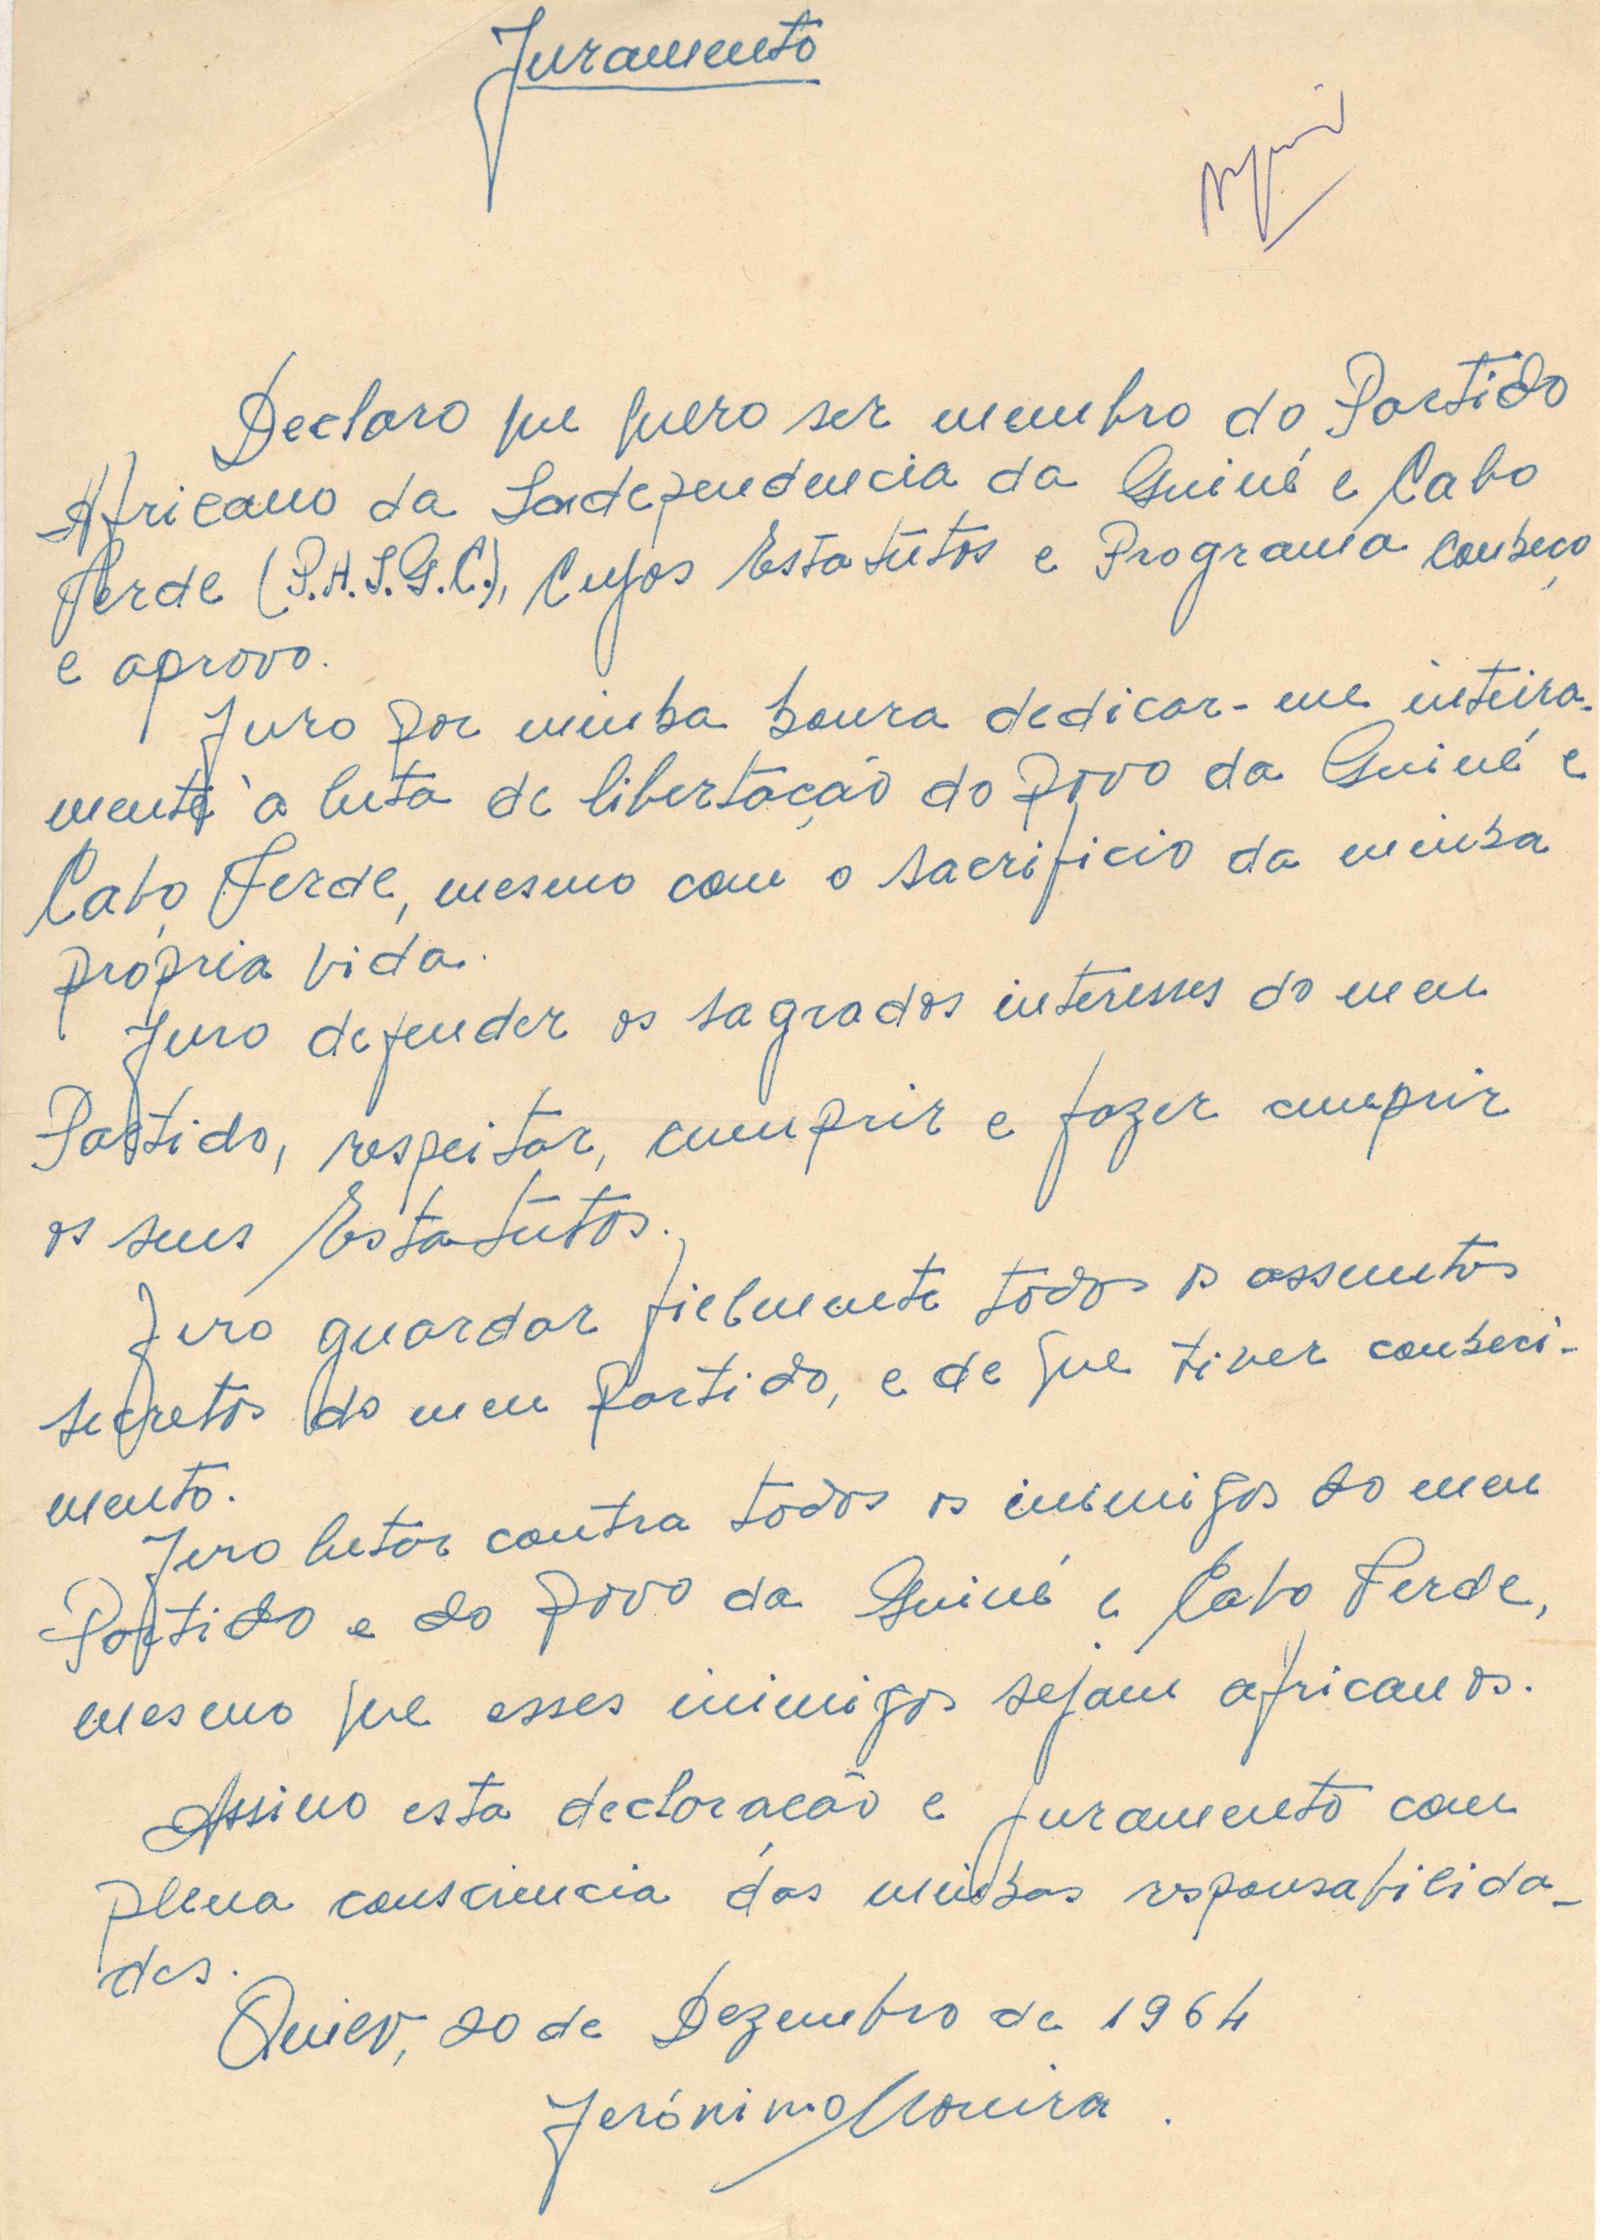 Juramento
Declaro que quero ser membro do Partido
Africano da Independencia da Guiné e Cabo
Verde (P.A.I.G.C.), Cujos Estatutos e Programa conheço
e aprovo.
Juro por minha honra dedicar-me inteira-
mente à luta de libertação do povo da Guiné e
Cabo Verde, mesmo com o sacrificio da minha
própria vida.
Juro defender os sagrados interesses do meu
Partido, respeitar, cumprir e fazer cumprir
os seus Estatutos.
Juro guardar fielmente todos os assuntos
secretos do meu Partido, e de que tiver conheci-
mento.
Juro lutar contra todos os inimigos do meu
Partido e do povo da Guiné e Cabo Verde,
mesmo que esses inimigos sejam africanos.
Assino esta declaração e juramento com
plena consciencia das minhas responsabilida-
des.
20 de Dezembro de 1964
Jerónimo Moreira.